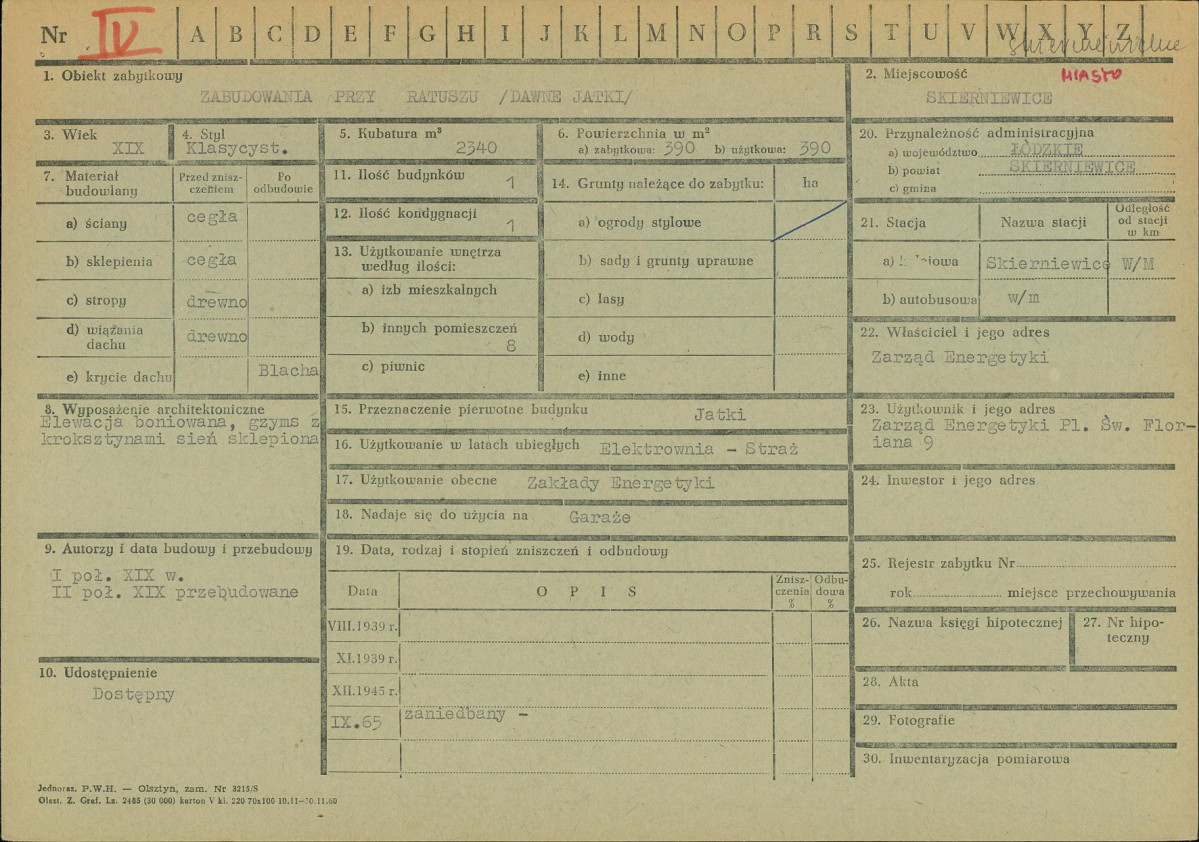 Nr IV A B C D E F G H I J K L M N O P R S T U V W X Y Z
skierniewickie
1. Obiekt zabytkowy
ZABUDOWANIA PRZY RATUSZU /DAWNE JATKI/
2. Miejscowość MIASTO
SKIERNIEWICE
3. Wiek
XIX
4. Styl
Klasycyst.
5. Kubatura m³
2340
6. Powierzchnia w m²
a) zabytkowa: 390 b) użytkowa: 390
20. Przynależność administracyjna
a) województwo ŁÓDZKIE
b) powiat SKIERNIEWICE
c) gmina
7. Materiał budowlany
Przed zniszczeniem
Po odbudowie
a) ściany cegła
b) sklepienia cegła
c) stropy drewno
d) wiązania dachu drewno
e) krycie dachu Blacha
11. Ilość budynków 1
12. Ilość kondygnacji 1
13. Użytkowanie wnętrza
według ilości:
a) izb mieszkalnych
b) innych pomieszczeń
8
c) piwnic
14. Grunty należące do zabytku: ha
a) ogrody stylowe
b) sady i grunty uprawne
c) lasy
d) wody
e) inne
21. Stacja Nazwa stacji Odległość
od stacji
w km
a) iowa Skierniewice W/M
b) autobusowa w/m
22. Właściciel i jego adres
Zarząd Energetyki
8. Wyposażenie architektoniczne
Elewacja boniowana, gzyms z
kroksztynami sień sklepiona
15. Przeznaczenie pierwotne budynku Jatki
16. Użytkowanie w latach ubiegłych Elektrownia - Straż
17. Użytkowanie obecne Zakłady Energetyki
18. Nadaje się do użycia na Garaże
23. Użytkownik i jego adres
Zarząd Energetyki Pl. Św. Flor-
iana 9
24. Inwestor i jego adres
9. Autorzy i data budowy i przebudowy
I poł. XIX w.
II poł. XIX przebudowane
10. Udostępnienie
Dostępny
19. Data, rodzaj i stopień zniszczeń i odbudowy
Data OPIS Znisz-
czenia
%
Odbu-
dowa
%
VIII.1939 r.
XI.1939 r.
XII.1945 r.
IX.65 zaniedbany -
25. Rejestr zabytku Nr
rok miejsce przechowywania
26. Nazwa księgi hipotecznej
27. Nr hipo-
teczny
28. Akta
29. Fotografie
30. Inwentaryzacja pomiarowa
Jednoraz. P.W.H. — Olsztyn, zam. Nr 3215/S
Olszt. Z. Graf. Lz. 2485 (30 000) karton V kl. 220 70x100 10.11—30.11.60